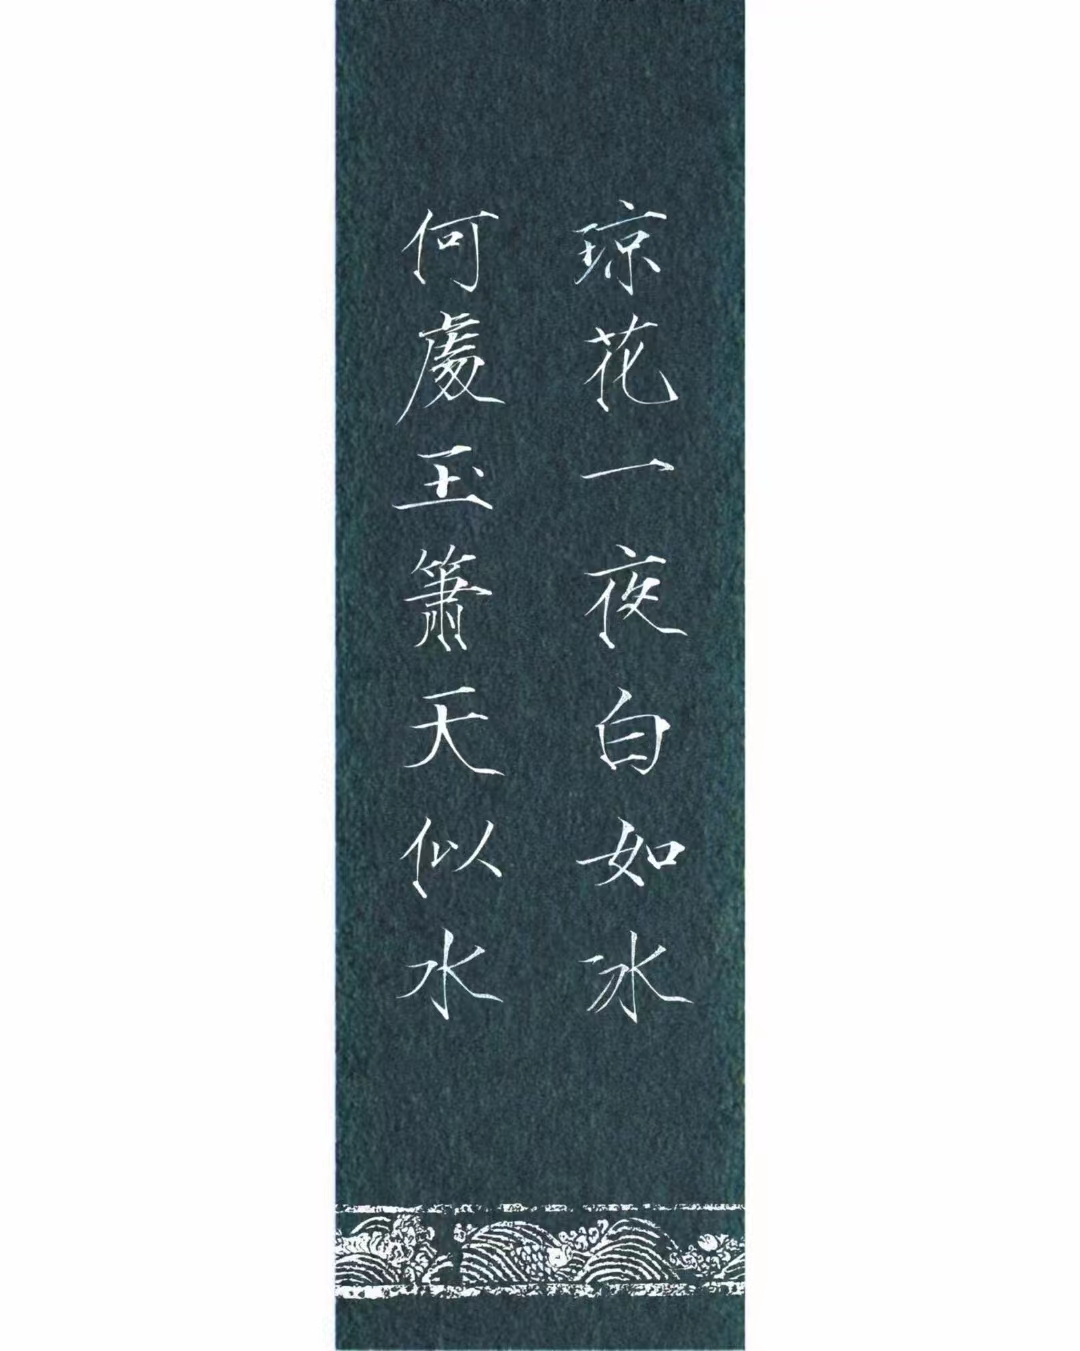 琼花一夜白如冰
何處玉簫天似水